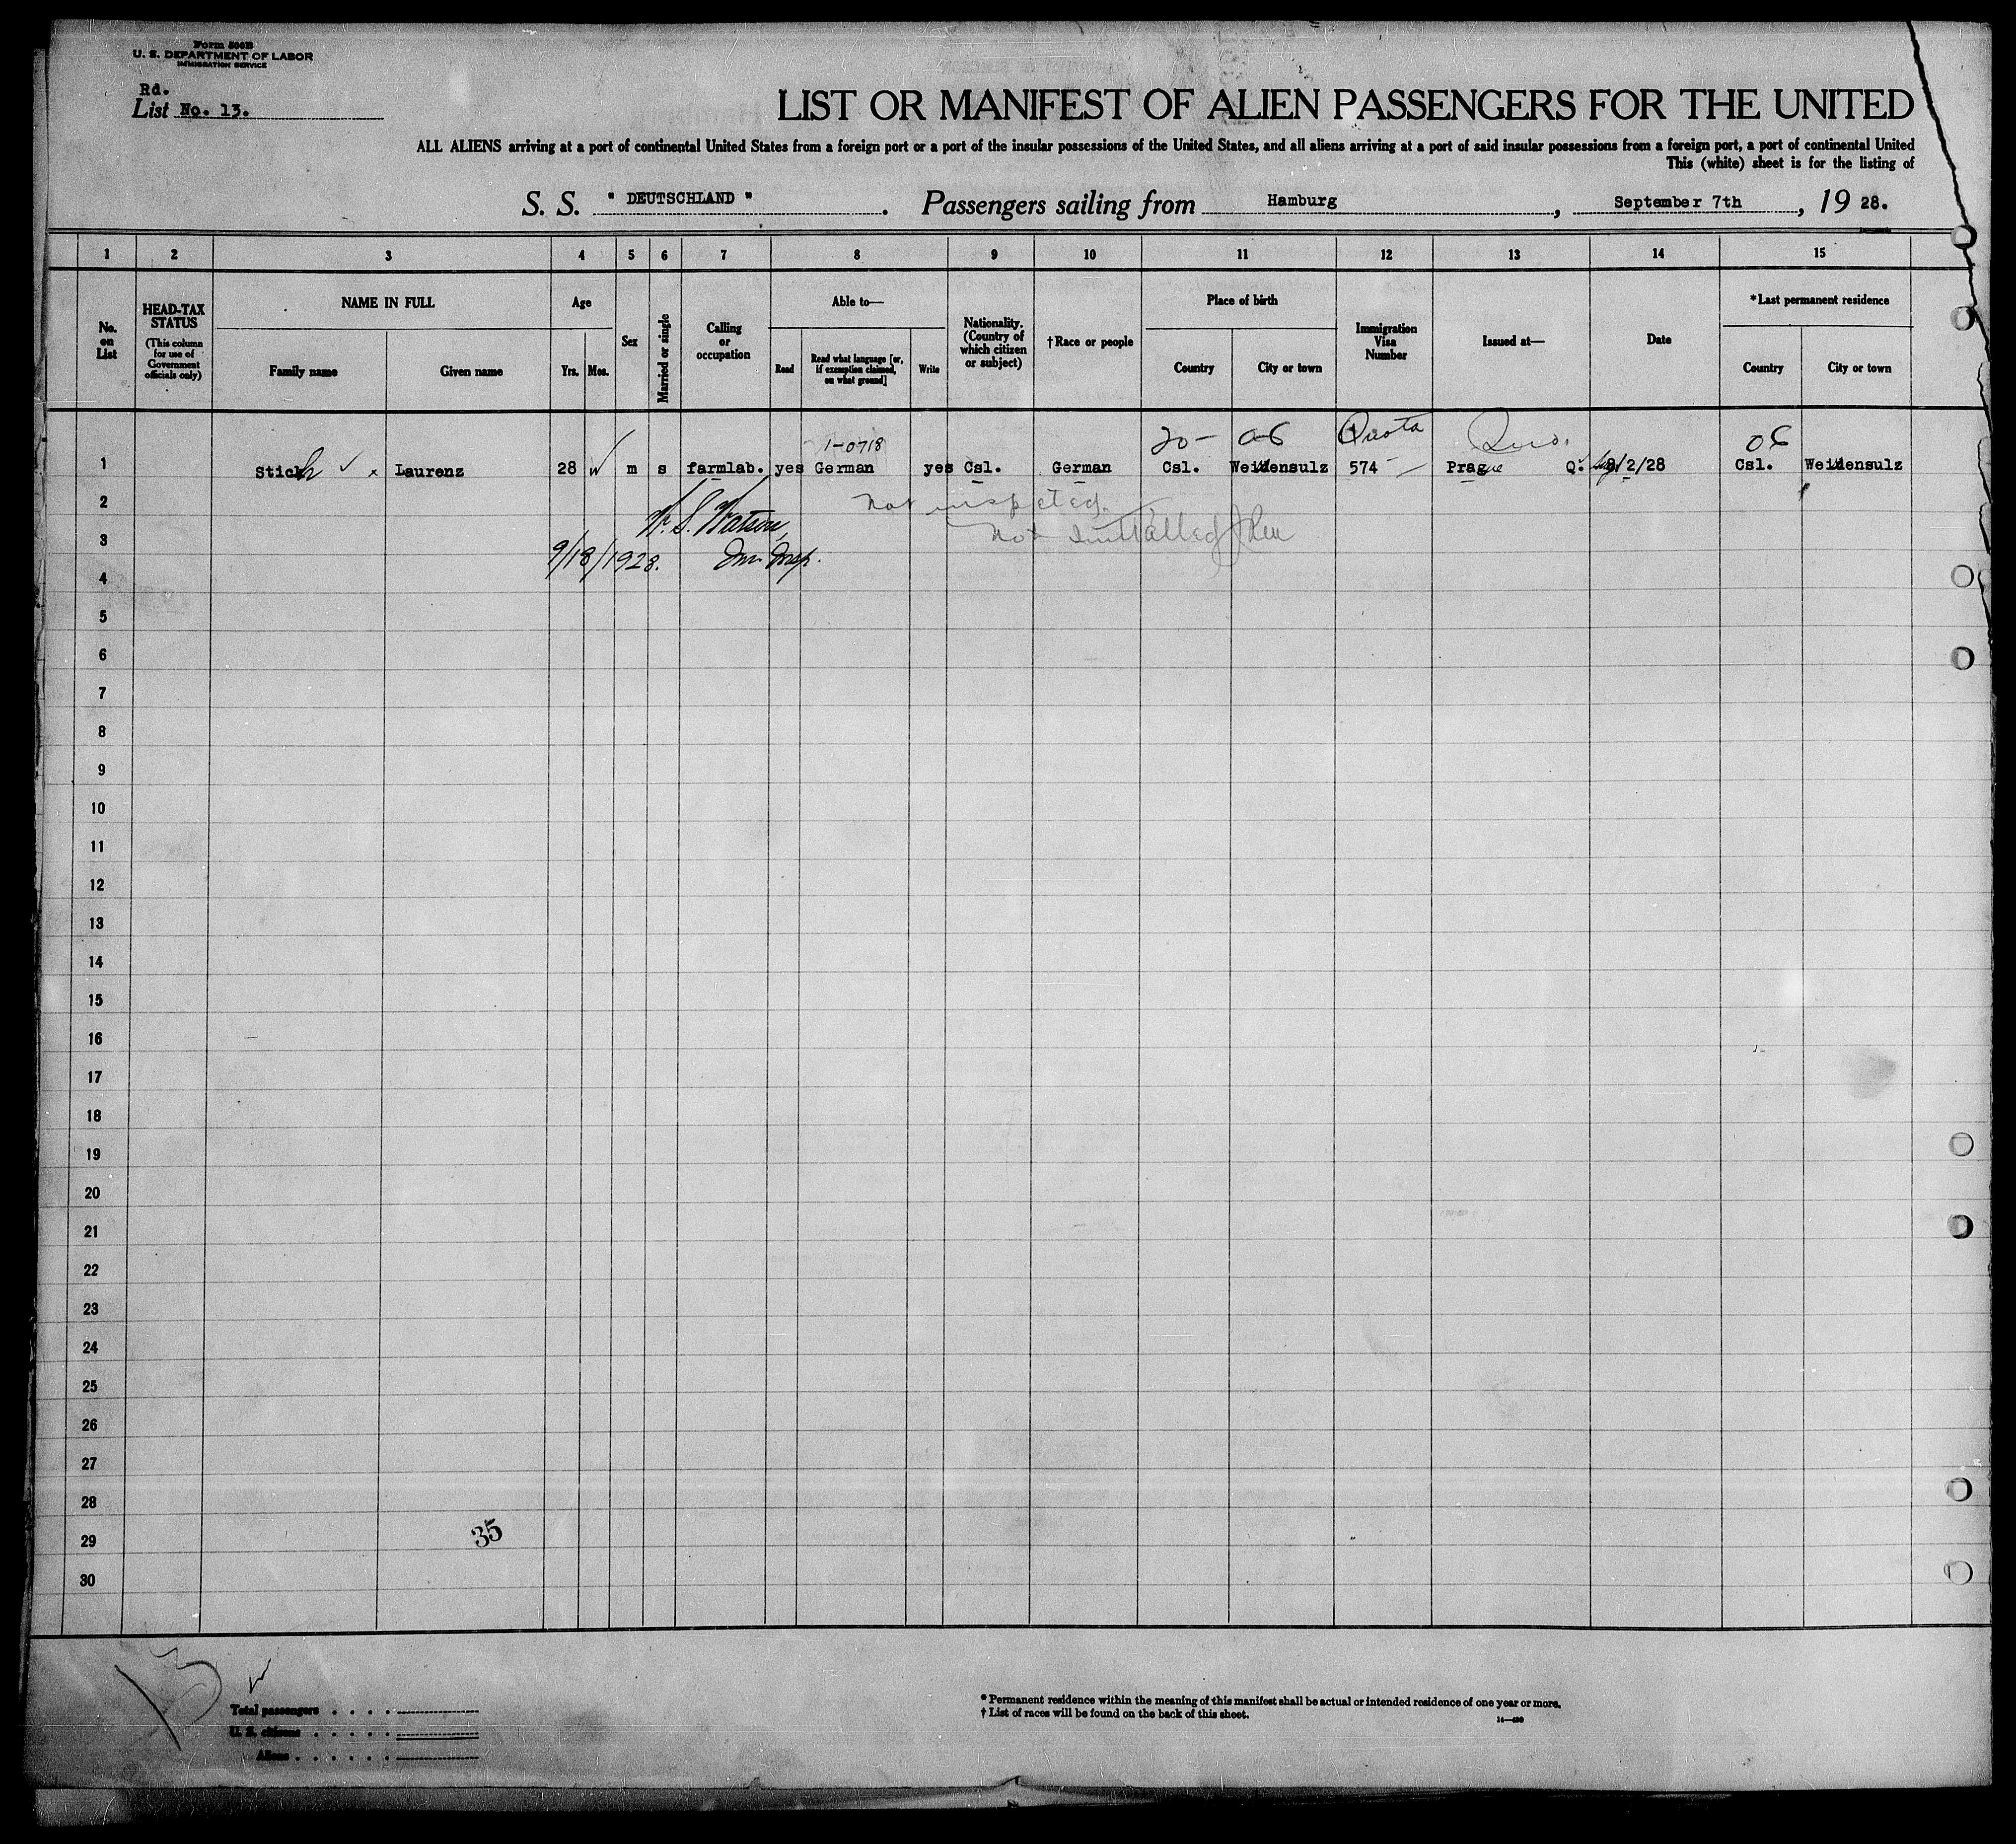 Form 500B
U. S. DEPARTMENT OF LABOR
IMMIGRATION SERVICE
Rd.
List No. 13.
LIST OR MANIFEST OF ALIEN PASSENGERS FOR THE UNITED
ALL ALIENS arriving at a port of continental United States from a foreign port or a port of the insular possessions of the United States, and all aliens arriving at a port of said insular possessions from a foreign port, a port of continental United
This (white) sheet is for the listing of
S. S. " DEUTSCHLAND ". Passengers sailing from Hamburg, September 7th, 19 28.
1 2 3 4 5 6 7 8 9 10 11 12 13 14 15
No. on List
HEAD-TAX STATUS (This column for use of Government officials only)
NAME IN FULL
Family name Given name
Age
Yrs. Mos.
Sex
Married or single
Calling or occupation
Able to—
Read Read what language [or, if exemption claimed, on what ground] Write
Nationality. (Country of which citizen or subject)
†Race or people
Place of birth
Country City or town
Immigration Visa Number
Issued at—
Date
*Last permanent residence
Country City or town
1-0718 20- 06 Quota 06
1 Stich ✓ x Laurenz 28 m s farmlab. yes German yes Csl. German Csl. Weidensulz 574 Prague Q. 8/2/28 Csl. Weidensulz
2 not inspected.
W. S. Watson,
3 not
9/18/1928. Imm Insp.
4
5
6
7
8
9
10
11
12
13
14
15
16
17
18
19
20
21
22
23
24
25
26
27
28
29 35
30
13
Total passengers
U. S. citizens
Aliens
* Permanent residence within the meaning of this manifest shall be actual or intended residence of one year or more.
† List of races will be found on the back of this sheet.